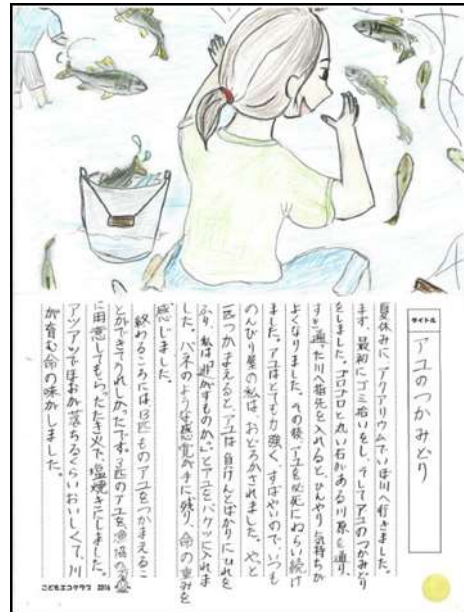 タイトル
アユのつかみどり
夏休みに、アクアリウムでいぼ川へ行きました。
まず、最初にゴミ拾いをし、そしてアユのつかみどり
をしました。ゴロゴロと丸い石がある川原を通り、
すき通った川へ指先を入れると、ひんやり気持ちが
よくなりました。その後、アユを必死にねらい続け
ました。アユはとても力強く、すばやいので、いつも
のんびり屋の私は、おどろかされました。やっと
一匹つかまえると、アユは負けんとばかりにひれを
ふり、私は「逃がすものか。」とアユをバケツに入れま
した。バネのような感覚が手に残り、命の重みを
感じました。
終わるころには13匹ものアユをつかまえるこ
とができてうれしかったです。3匹のアユを漁協の
に用意してもらったたき火で、塩焼きにしました。
アツアツでほおが落ちるくらいおいしくて、川
が育む命の味がしました。
こどもエコクラブ 2016